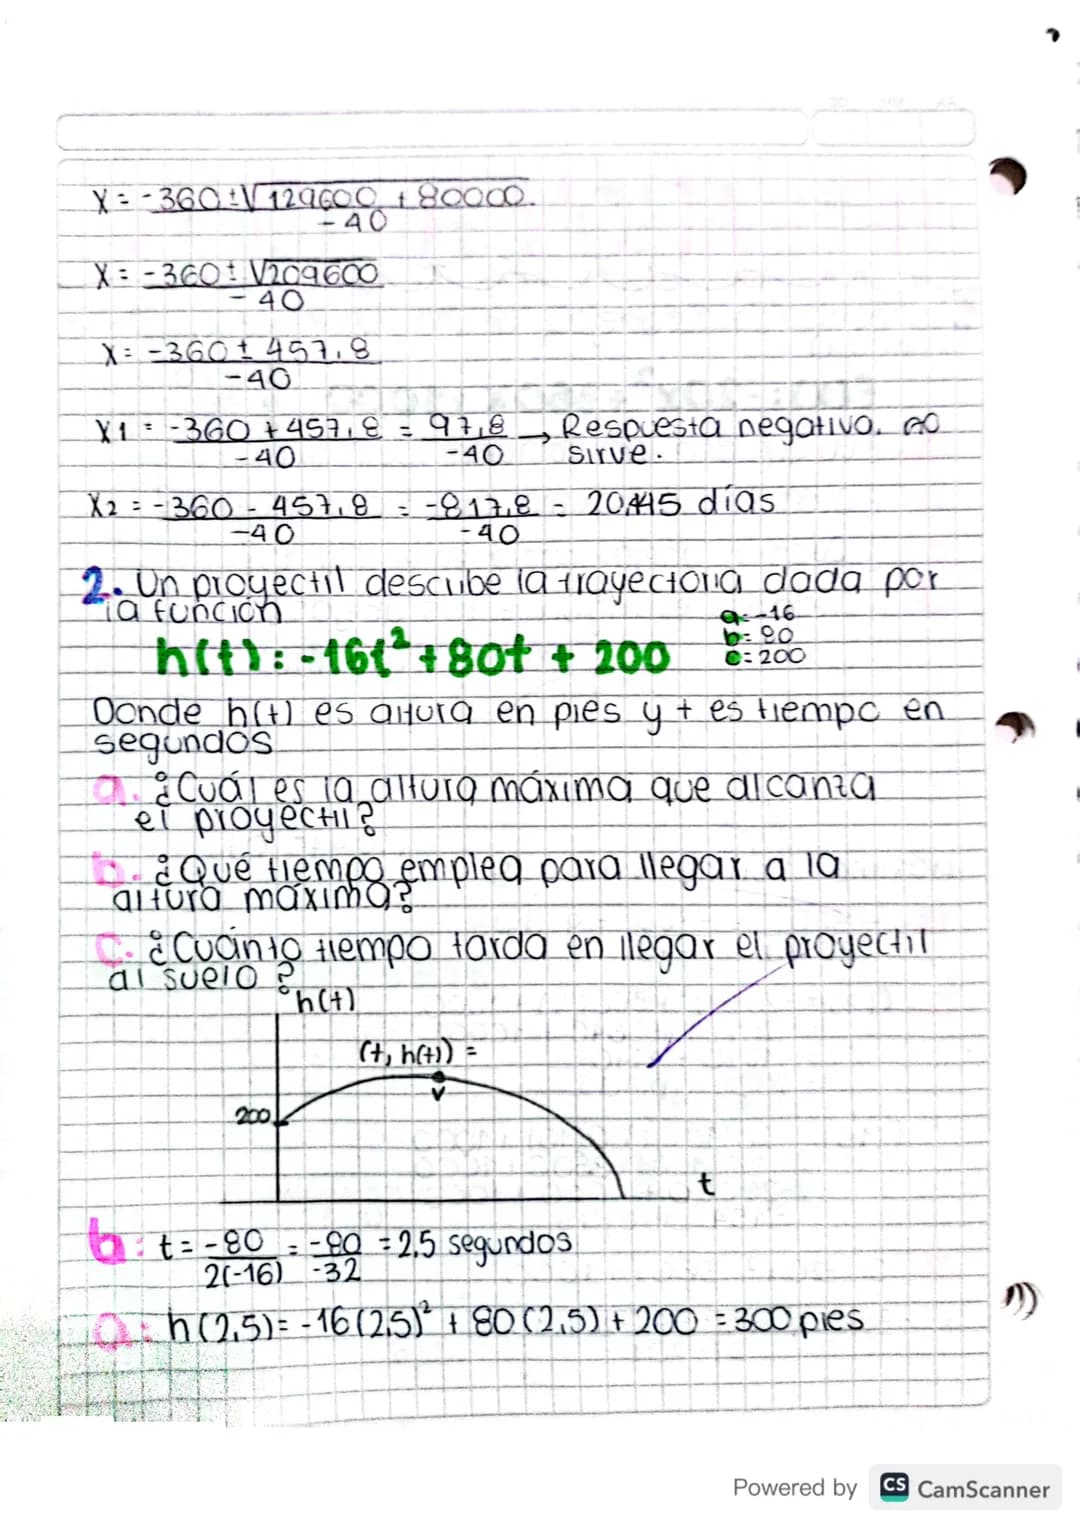 X = -360 ± √129600 + 80000
-40
X = -360 ± √209600
-40
X = -360 ± 457,8
-40
X1 = -360 + 457,8 = 97,8 → Respuesta negativo. no
-40 -40 sirve.
X2 = -360 - 457,8 = -817,8 = 20,445 días
-40 -40
2. Un proyectil describe la trayectoria dada por
la función
a = -16
b = 80
h(t) = -16t² + 80t + 200
c = 200
Donde h(t) es altura en pies y t es tiempo en
segundos
a. ¿Cuál es la altura máxima que alcanza
el proyectil?
b. ¿Qué tiempo emplea para llegar a la
altura máxima?
c. ¿Cuánto tiempo tarda en llegar el proyectil
al suelo?
h(t)
(t, h(t)) =
V
200
t
b: t = -80 = -80 = 2,5 segundos
2(-16) -32
a: h(2,5) = -16(2,5)² + 80(2,5) + 200 = 300 pies
Powered by CS CamScanner